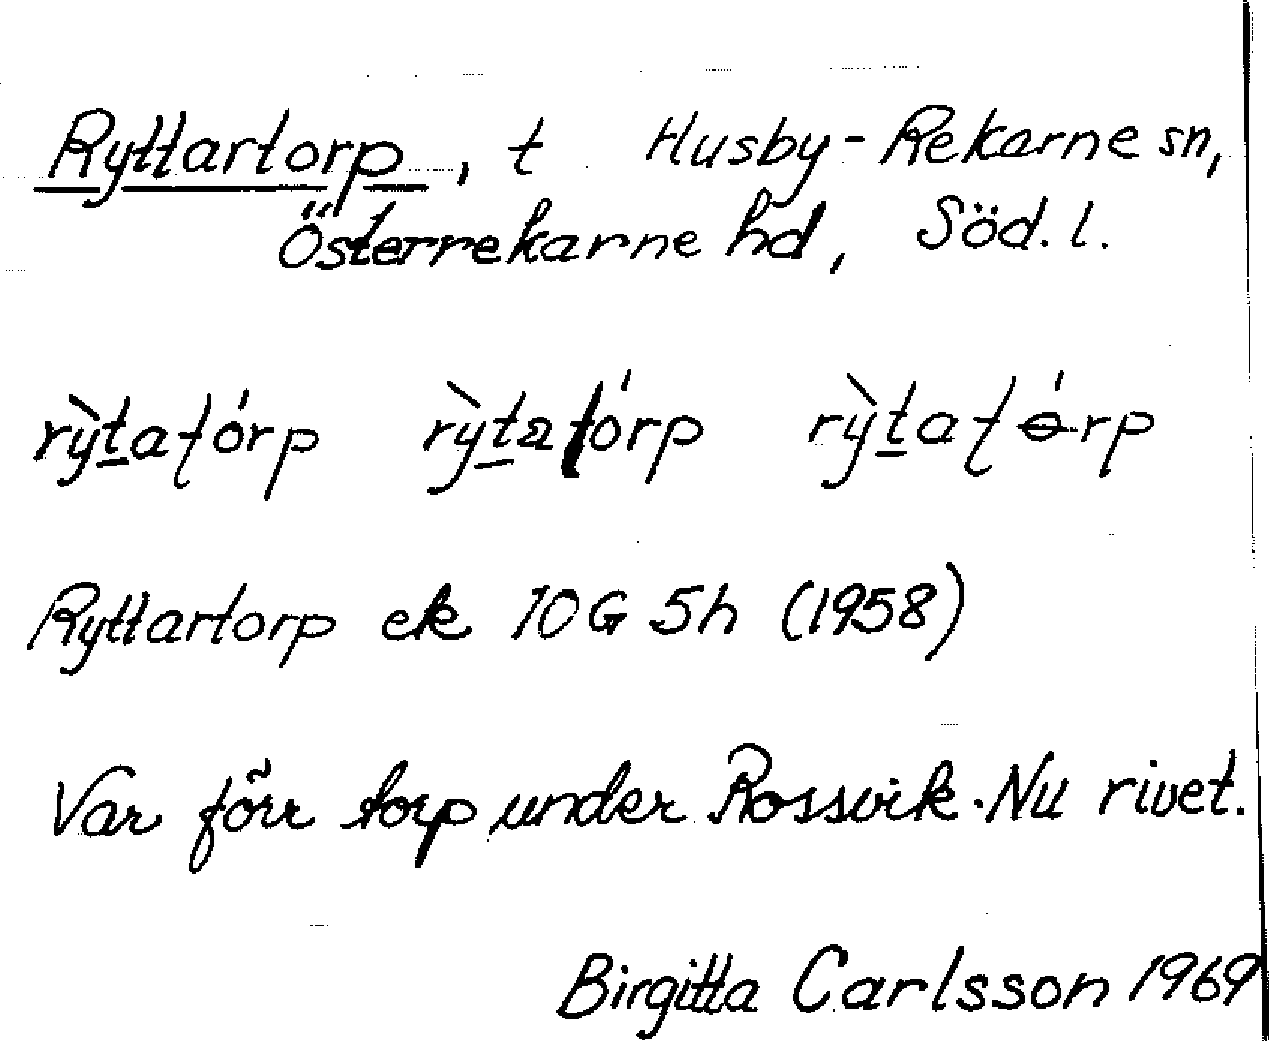 Ryttartorp, t Husby-Rekarne sn,
Österrekarne hd, Söd. l.
rỳtatórp rỳtatórp rỳtatɵ́rp
Ryttartorp ek 10G 5h (1958)
Var förr torp under Rossvik. Nu rivet.
Birgitta Carlsson 1969